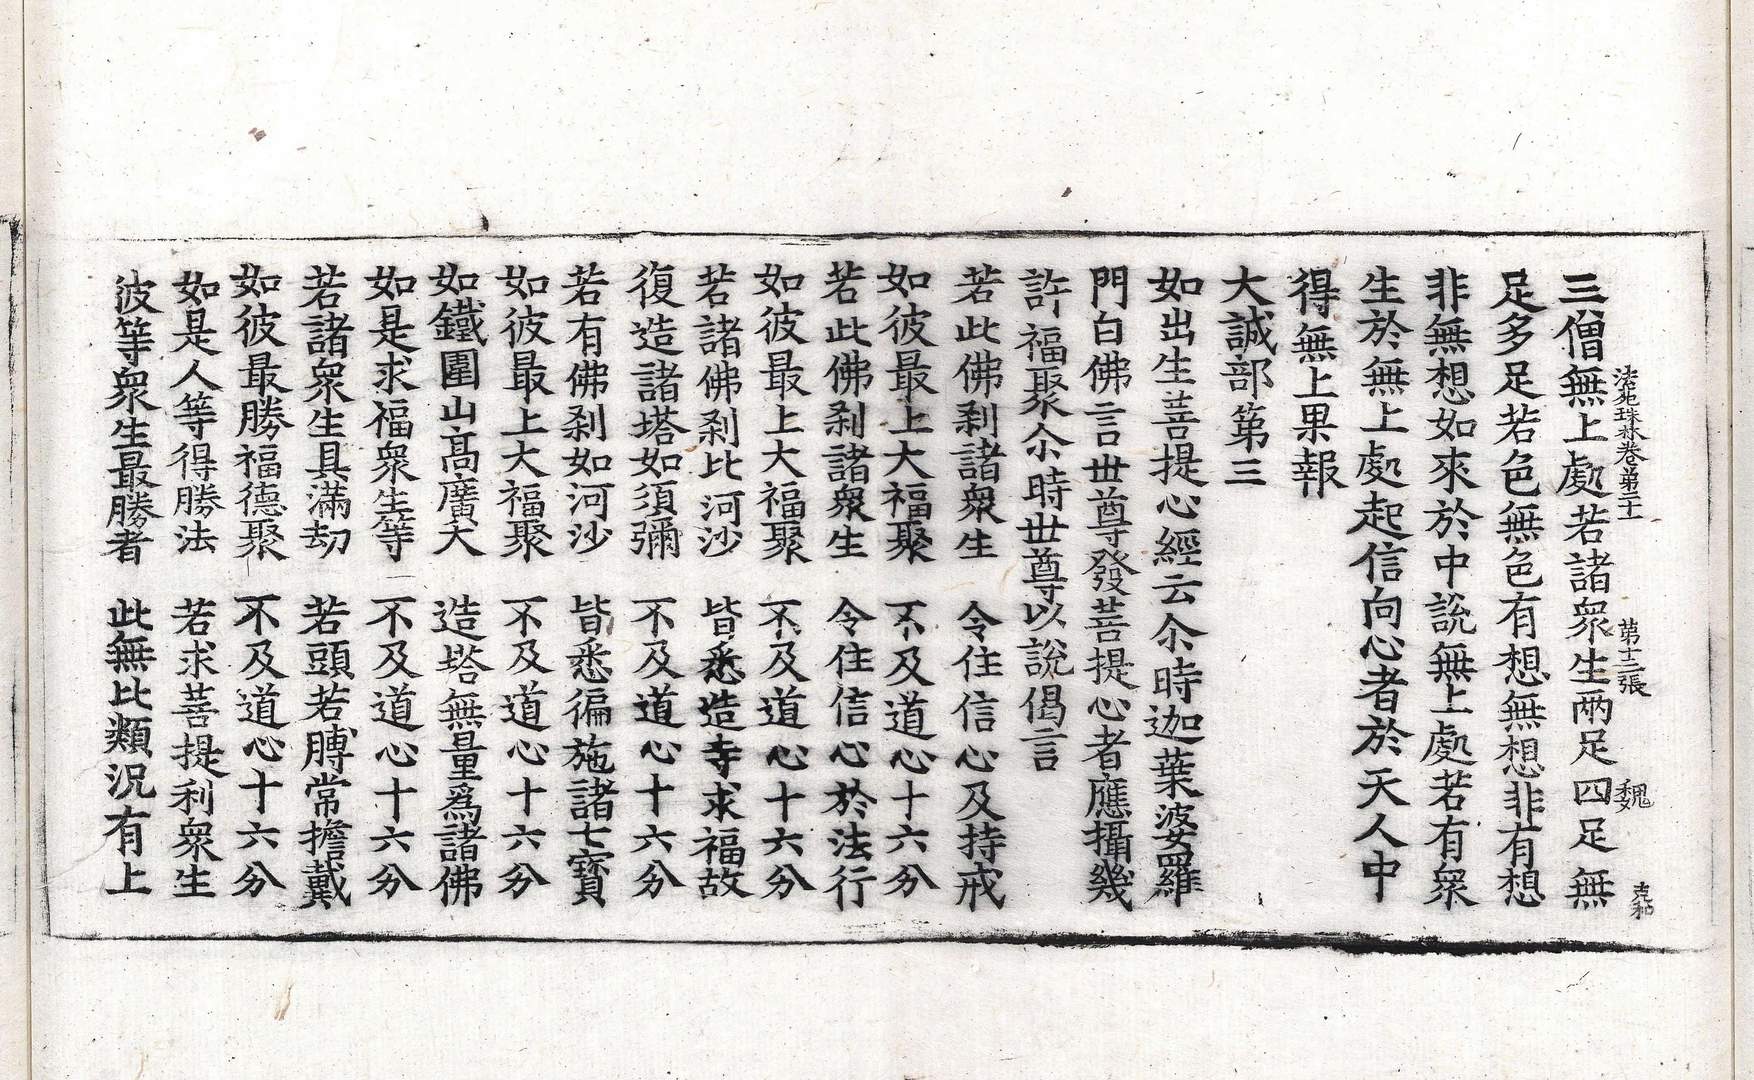 法苑珠林卷第二十 第十二張 魏 克和
三僧無上處若諸衆生兩足四足無
足多足若色無色有想無想非有想
非無想如來於中說無上處若有衆
生於無上處起信向心者於天人中
得無上果報
大誠部第三
如出生菩提心經云尒時迦葉婆羅
門白佛言世尊發菩提心者應攝幾
許福聚尒時世尊以說偈言
若此佛刹諸衆生 令住信心及持戒
如彼最上大福聚 不及道心十六分
若此佛刹諸衆生 令住信心於法行
如彼最上大福聚 不及道心十六分
若諸佛刹比河沙 皆悉造寺求福故
復造諸塔如須彌 不及道心十六分
若有佛刹如河沙 皆悉徧施諸七寳
如彼最上大福聚 不及道心十六分
如鐵圍山髙廣大 造塔無量爲諸佛
如是求福衆生等 不及道心十六分
若諸衆生具滿劫 若頭若膊常擔戴
如彼最勝福德聚 不及道心十六分
如是人等得勝法 若求菩提利衆生
彼等衆生最勝者 此無比類況有上